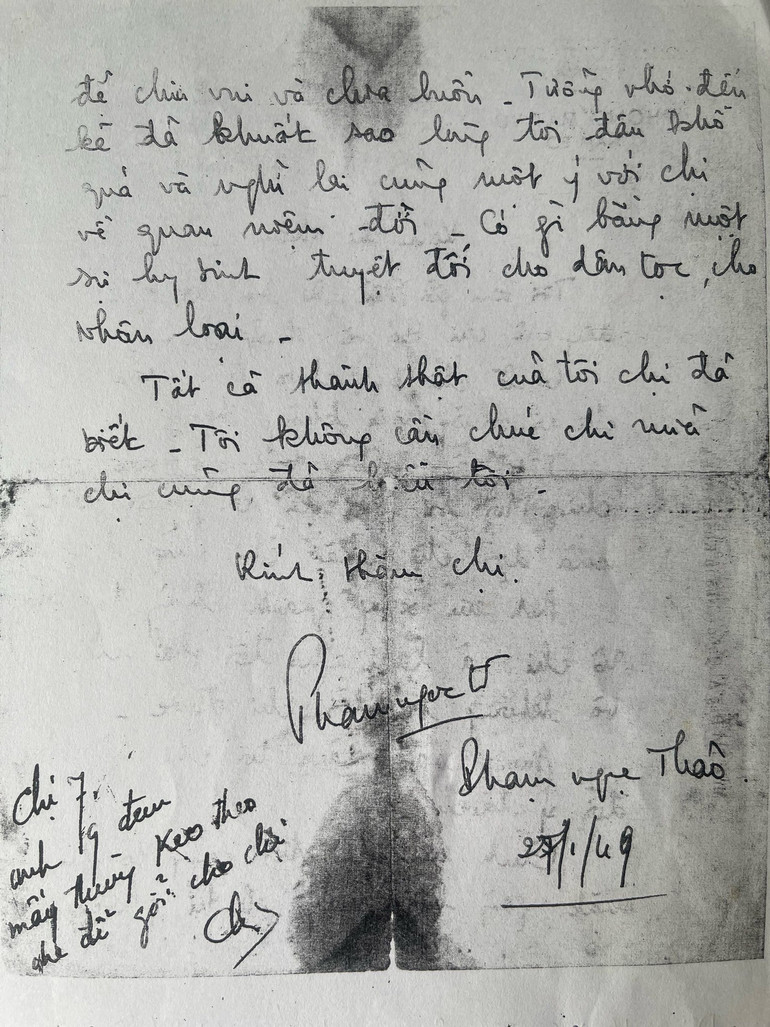 để chia vui và chia buồn - Tưởng nhớ đến
kẻ đã khuất sao lòng tôi đau khổ
quá và nghĩ lại cùng một ý với chị
về quan niệm đời - Có gì bằng một
sự hy sinh tuyệt đối cho dân tộc, cho
nhân loại -
Tất cả thành thật của tôi chị đã
biết - Tôi không cần chúc chị nữa
chị cũng đã hiểu tôi -
Kính thăm chị.
Phạm ngọc
Phạm ngọc Thảo
1/49
Chị 7,
anh 9 đem
mấy thùng kẽo theo
ghe để gởi cho chị